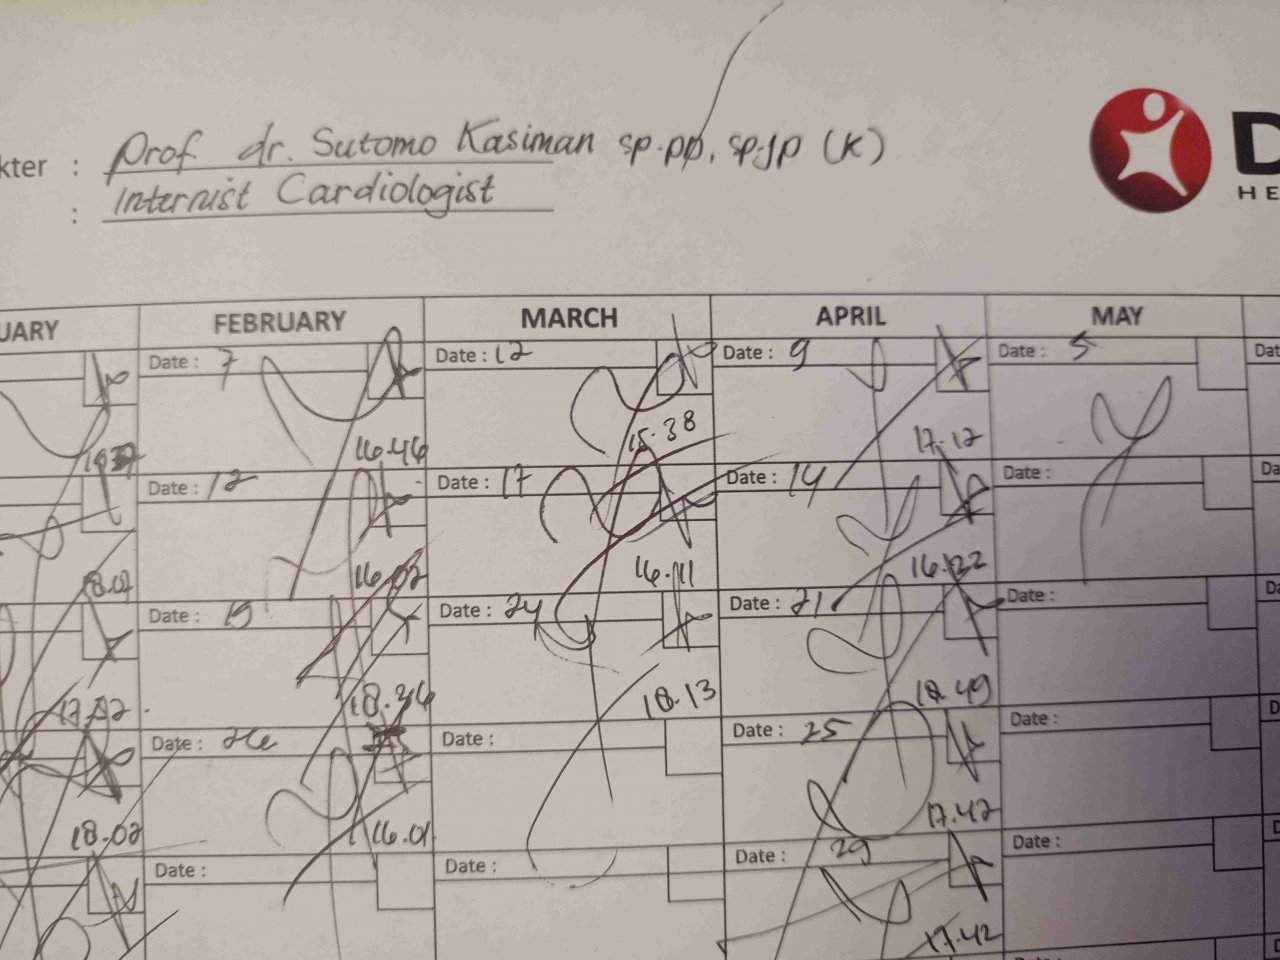 kter : Prof. dr. Sutomo Kasiman sp.pp, sp.jp (K)
: Internist Cardiologist
D
HE
UARY FEBRUARY MARCH APRIL MAY
Date : 7 Date : 12 Date : 9 Date : 5 Dat
16.46 15.38 17.12
Date : 12 Date : 17 Date : 14 Date : Da
18.02 16.02 16.11 16.22
Date : 19 Date : 24 Date : 21 Date : Da
17.52 18.36 18.13 18.49
Date : 26 Date : Date : 25 Date : D
18.02 16.01 17.42
Date : Date : Date : 29 Date : D
17.42